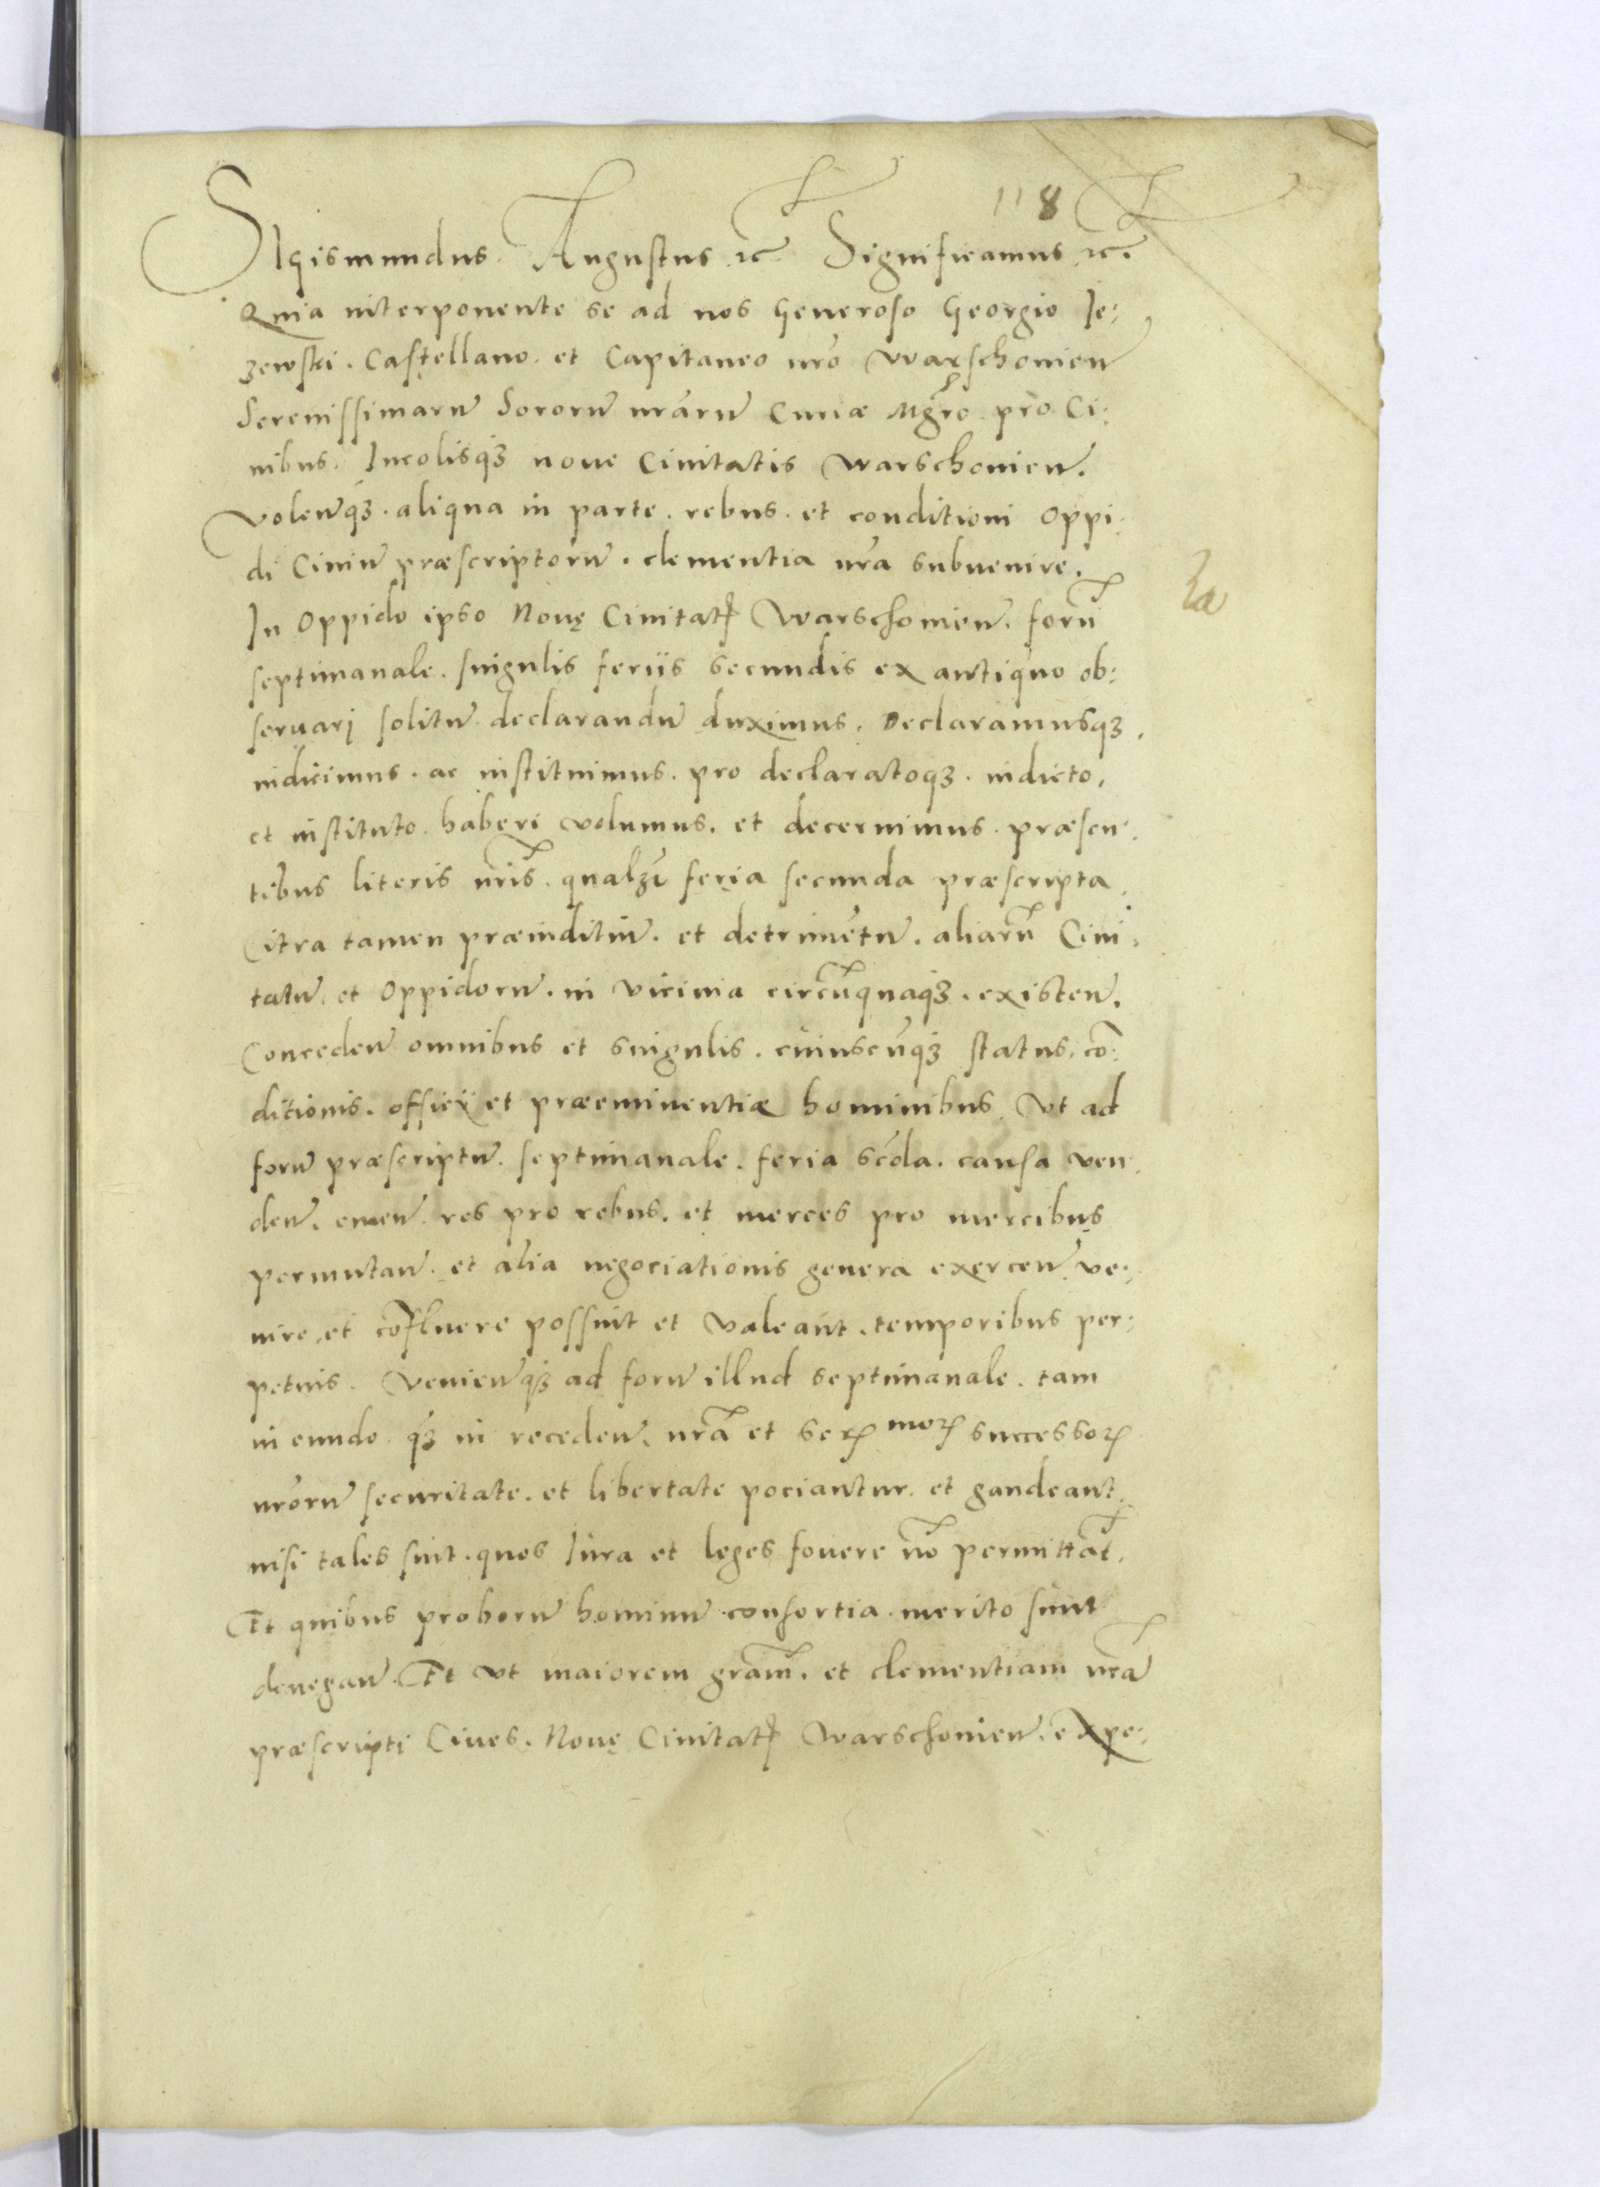 118
SIGismundus Augustus etc̃ Significamus etc̃.
Quia interponente se ad nos Generoso Georgio Je:
zewski. Castellano. et Capitaneo nrõ Warschovien̄
Serenissimarū Sororū nrãrū Curiæ Mgrõ pro Ci:
uibus. Incolisqꝫ noue Ciuitatis Warschouien̄.
Volen̄qꝫ. aliqua in parte. rebus. et conditioni Oppi:
di Ciuiū præscriptorū. clementia nrã subuenire.
In Oppido ipso Nouę Ciuitatꝭ Warschouien̄. forū
septimanale. singulis feriis secundis ex antiquo ob:
seruarj solitū declarandū duximus. Declaramusqꝫ
indicimus. ac instituimus. pro declaratoqꝫ. indicto,
et instituto haberi volumus. et decernimus. præsen:
tibus literis nrĩs. qualꝫt feria secunda præscripta
Citra tamen præiuditiū. et detrimẽtū. aliarũ Ciui:
tatū et Oppidorū. in vicinia circũquaqꝫ. existen̄.
Conceden̄ omnibus et singulis. cuiuscũqꝫ status. cõ:
ditionis. officij et præeminentiæ hominibus Vt ad
forū præscriptū. septimanale. feria scda. causa ven
den̄. emen̄ res pro rebus. et merces pro mercibus
permutan̄. et alia negociationis genera exercen̄ ve:
nire. et cõfluere possint et valeant. temporibus per:
petuis. Venien̄qꝫ ad forū illud septimanale. tam
in eundo qꝫ in receden̄. nrã et serꝝ morꝝ successorꝝ
nrõrū securitate. et libertate pociantur. et gaudeant
nisi tales sint. quos Iura et leges fouere nõ permittãt.
Et quibus proborū hominū consortia. merito sunt
denegan̄. Et vt maiorem grãm. et clementiam nrã
præscripti Ciues. Nouę Ciuitatꝭ Warschouien̄. expe: